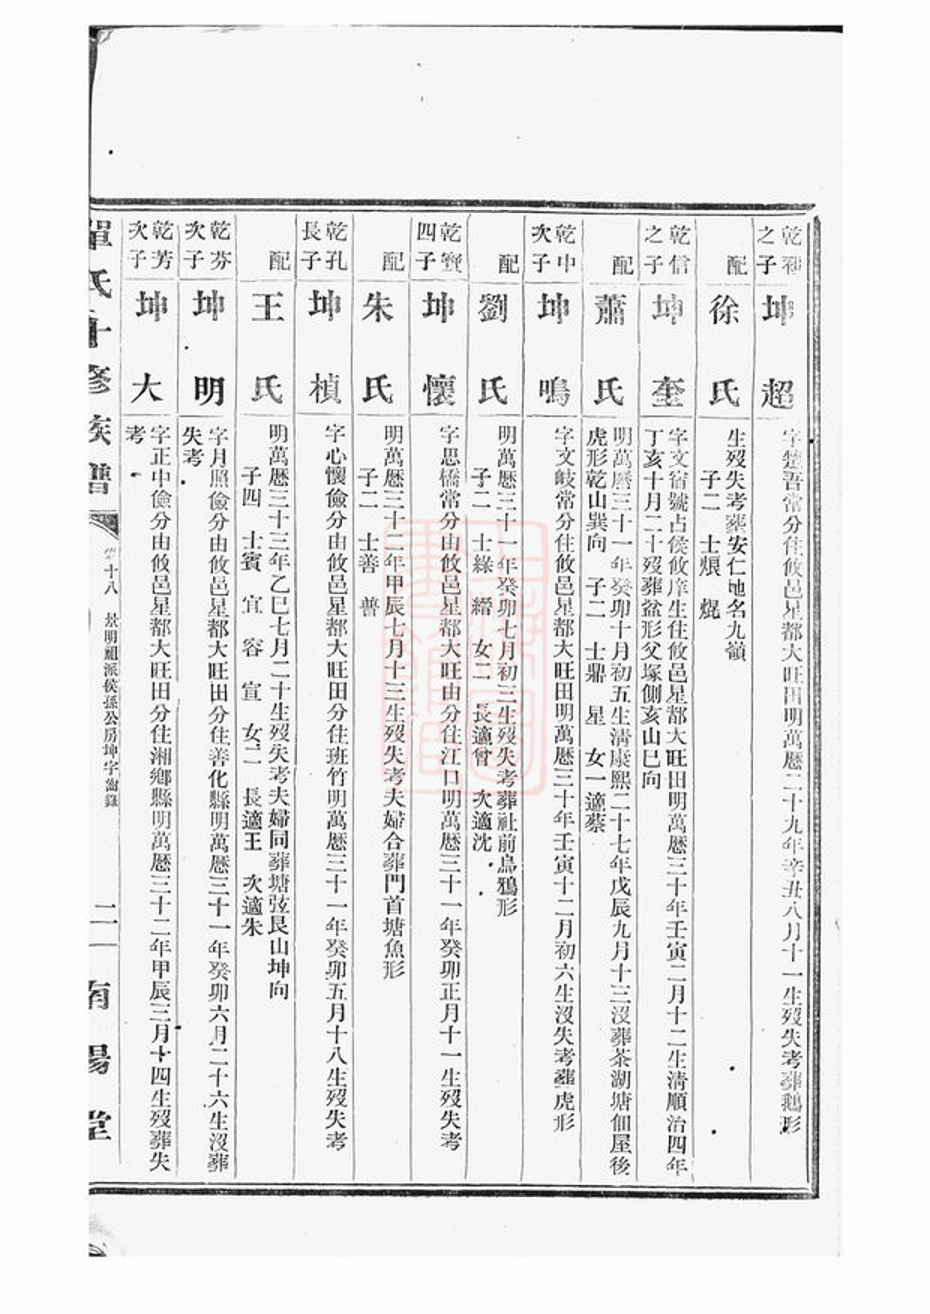 乾和之子
坤超
字楚吾常分住攸邑星都大旺田明萬曆二十九年辛丑八月十一生歿失考葬鵝形
配
徐氏
生歿失考葬安仁地名九嶺
子二 士烺 焜
乾信之子
坤奎
字文宿號占侯攸庠生住攸邑星都大旺田明萬曆三十年壬寅二月十二生淸順治四年
丁亥十月二十歿葬盆形父塚側亥山巳向
配
蕭氏
明萬曆三十一年癸卯十月初五生淸康熙二十七年戊辰九月十三沒葬茶湖塘佃屋後
虎形乾山巽向 子二 士鼎 星 女一適蔡
乾中次子
坤鳴
字文岐常分住攸邑星都大旺田明萬曆三十年壬寅十二月初六生沒失考葬虎形
配
劉氏
明萬曆三十一年癸卯七月初三生歿失考葬社前烏鴉形
子二 士綠 縉 女二 長適曾 次適沈
乾寶四子
坤懷
字思橋常分由攸邑星都大旺由分住江口明萬曆三十一年癸卯正月十一生歿失考
配
朱氏
明萬曆三十二年甲辰七月十三生歿失考夫婦合葬門首塘魚形
子二 士善 普
乾孔長子
坤楨
字心懷儉分由攸邑星都大旺田分住班竹明萬曆三十一年癸卯五月十八生歿失考
配
王氏
明萬曆三十三年乙巳七月二十生歿失考夫婦同葬塘弦艮山坤向
子四 士賓 宜 容 宣 女二 長適王 次適朱
乾芬次子
坤明
字月照儉分由攸邑星都大旺田分住善化縣明萬曆三十一年癸卯六月二十六生沒葬
失考
乾芳次子
坤大
字正中儉分由攸邑星都大旺田分住湘鄉縣明萬曆三十二年甲辰三月十四生歿葬失
考
單氏十修族譜
十八 景明祖派侯孫公房坤字齒錄
二一 南陽堂